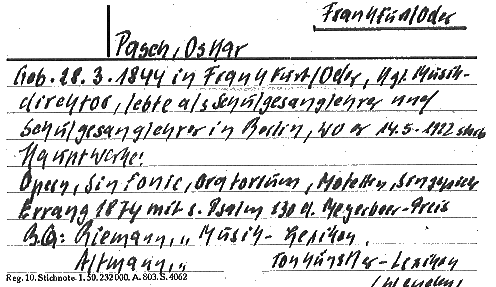 Frankfurt/Oder
Pasch, Oskar
Geb. 28. 3. 1844 in Frankfurt/Oder, Kgl. Musik-
direktor, lebte als Schulgesanglehrer und
Schulgesanglehrer in Berlin, wo er 14.5.1922 starb
Hauptwerke:
Opern, Sinfonie, Oratorium, Motetten, Singspiele
Errang 1874 mit s. Psalm 130 d. Meyerbeer-Preis
B.Q: Riemann, „ Musik-Lexikon,
Altmann, „ Tonkünstler-Lexikon
Reg. 10. Stichnote. 1. 50. 232000. A. 803. S. 4062